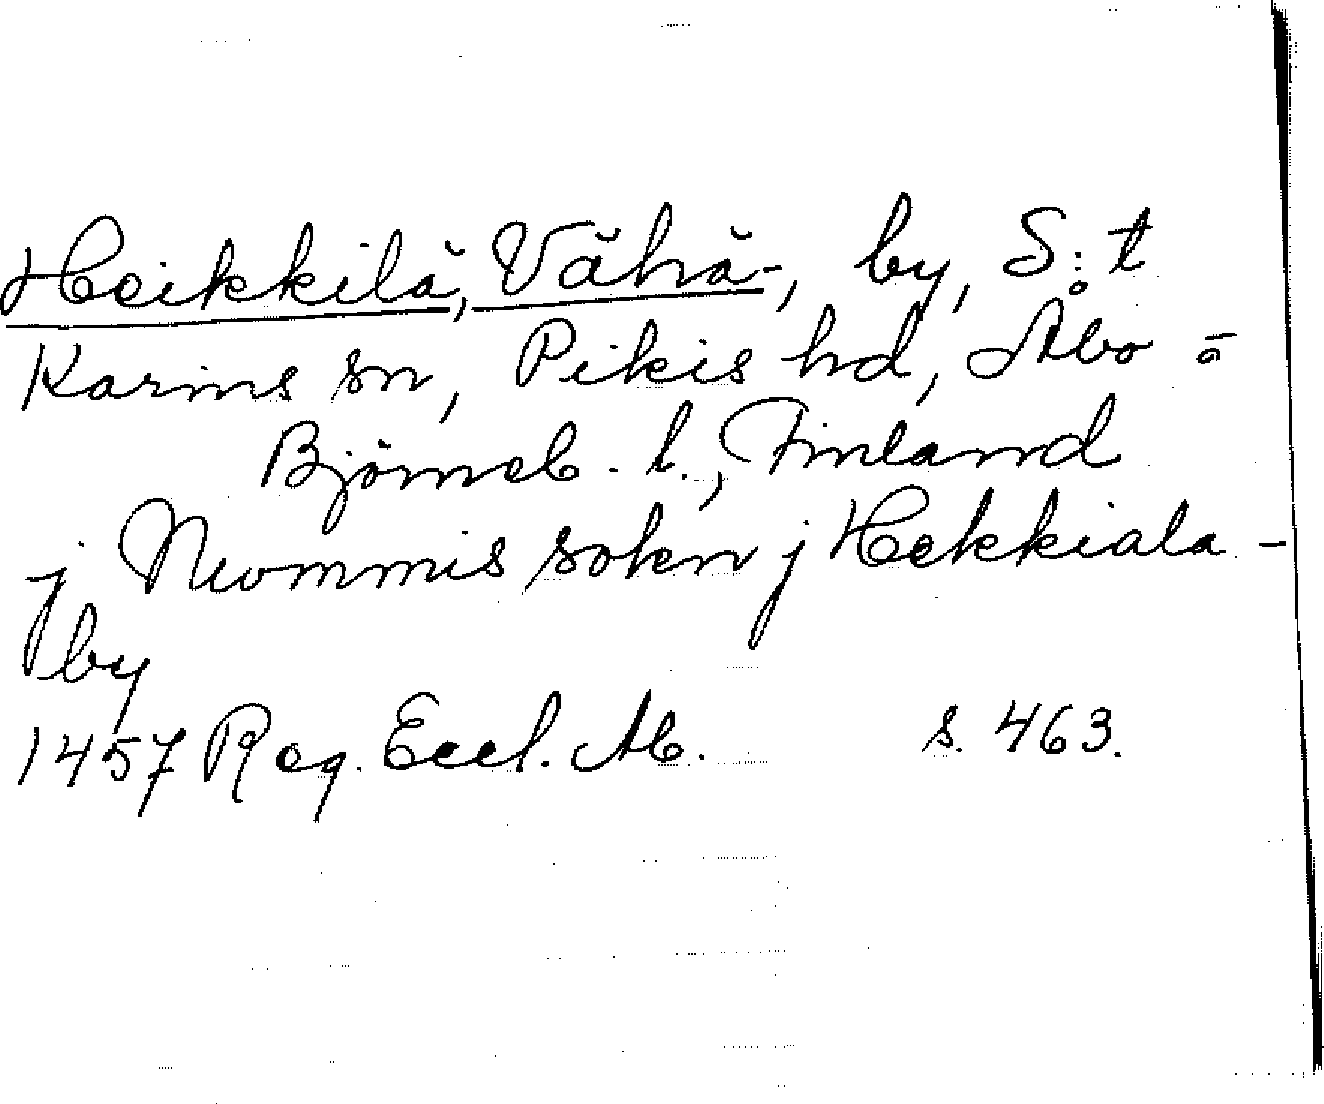 Heikkilä, Vähä-, by, S:t
Karins sn, Pikis hd, Åbo o
Björneb. l., Finland
j Nummis sokn j Hekkiala-
by
1457 Reg. Eccl. Ab. s. 463.